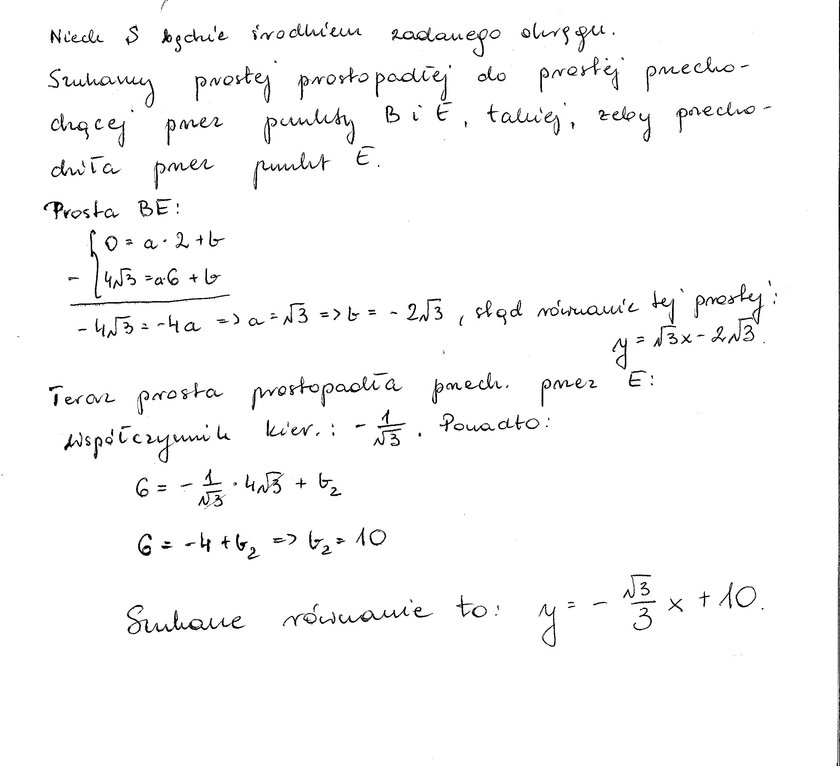 Niech S będzie środkiem zadanego okręgu.
Szukamy prostej prostopadłej do prostej przecho-
dzącej przez punkty B i E, takiej, żeby przecho-
dziła przez punkt E.
Prosta BE:
0 = a · 2 + b
- 4√3 = a·6 + b
-4√3 = -4a => a = √3 => b = -2√3, stąd równanie tej prostej:
y = √3x - 2√3.
Teraz prosta prostopadła przech. przez E:
Współczynnik kier.: -1/√3. Ponadto:
6 = -1/√3 · 4√3 + b₂
6 = -4 + b₂ => b₂ = 10
Szukane równanie to: y = -√3/3 x + 10.